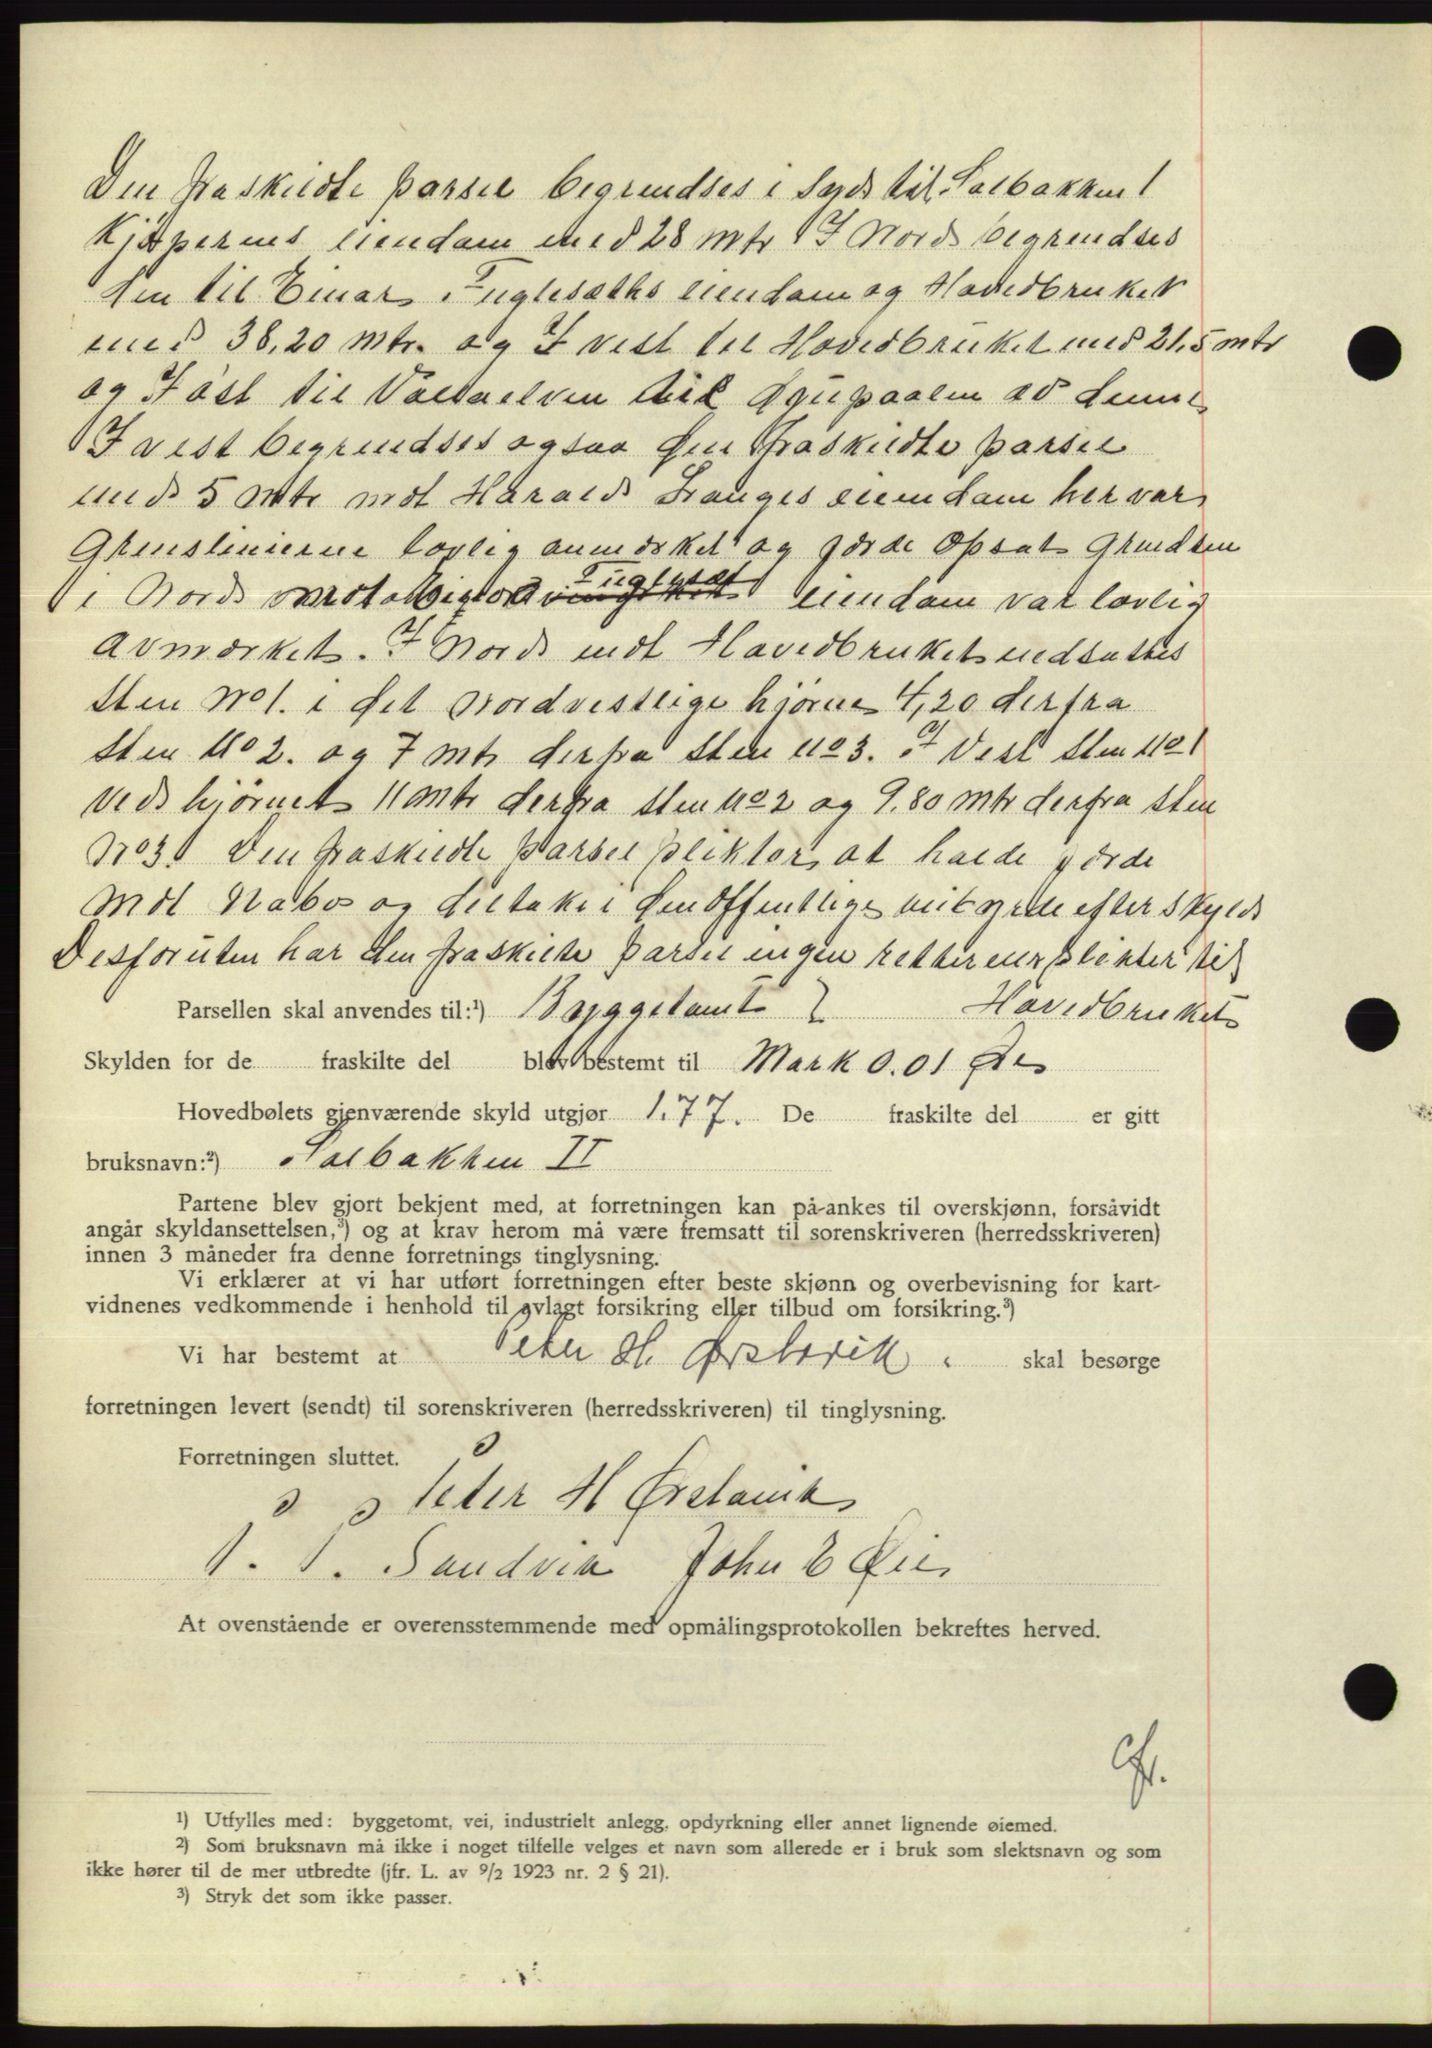 Den fraskildte parsel begrendses i Syd til Solbakken 1
Kjøperens eiendom med 28 mtr I Nord begrendses
den til Einar Fuglesæths eiendom og Hovedbruket
med 38,20 mtr. og I vest til Hovedbruket med 21,5 mtr
og I øst til Voldaelven til Dyupaalen av denne
I vest begrendses ogsaa den fraskildte parsel
med 5 mtr mot Harald eiendom her var
Grenslinierne lovlig avmærket og gjerde opsat Grendsen
i Nord mot Fuglesæt eiendom var lovlig
avmærket. I Nord mot Hovedbruket nedsattes
Sten No 1. i det Nordvestlige hjørne 4,20 derfra
Sten No 2. og 7 mtr derfra Sten No 3. I Vest Sten No 1
Ved hjørnet 11 mtr derfra Sten No 2 og 9.80 mtr derfra Sten
No 3. Den fraskildte parsel plikter at holde gjerde
Mot Nabo og deltake i den offentlige veibyrde efter skyld
Desforuten har den fraskilte parsel ingen retter eller plikter til
Parsellen skal anvendes til:¹) Byggetomt Hovedbruket
Skylden for de fraskilte del blev bestemt til Mark 0.01 Øre
Hovedbølets gjenværende skyld utgjør 1.77. De fraskilte del er gitt
bruksnavn:²) Solbakken II
Partene blev gjort bekjent med, at forretningen kan på-ankes til overskjønn, forsåvidt
angår skyldansettelsen,³) og at krav herom må være fremsatt til sorenskriveren (herredsskriveren)
innen 3 måneder fra denne forretnings tinglysning.
Vi erklærer at vi har utført forretningen efter beste skjønn og overbevisning for kart-
vidnenes vedkommende i henhold til avlagt forsikring eller tilbud om forsikring.³)
Vi har bestemt at Peter H. Ørstavik skal besørge
forretningen levert (sendt) til sorenskriveren (herredsskriveren) til tinglysning.
Forretningen sluttet.
Peter H Ørstavik
P. P. Sandvik John E Øie
At ovenstående er overensstemmende med opmålingsprotokollen bekreftes herved.
¹) Utfylles med: byggetomt, vei, industrielt anlegg, opdyrkning eller annet lignende øiemed.
²) Som bruksnavn må ikke i noget tilfelle velges et navn som allerede er i bruk som slektsnavn og som
ikke hører til de mer utbredte (jfr. L. av 9/2 1923 nr. 2 § 21).
³) Stryk det som ikke passer.